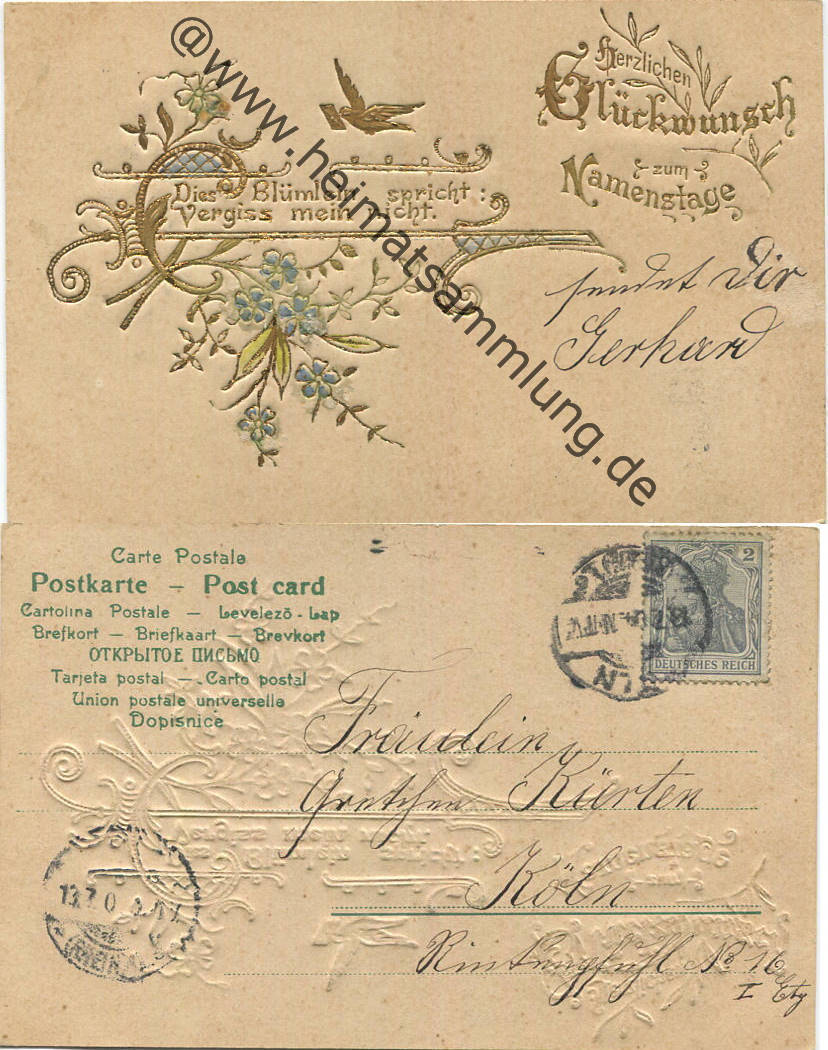 @www.heimatsammlung.de
Herzlichen
Glückwunsch
zum
Namenstage
Dies Blümlein spricht:
Vergiss mein nicht.
sendet Dir
Gerhard
Carte Postale
Postkarte — Post card
Cartolina Postale — Levelezö-Lap
Brefkort — Briefkaart — Brevkort
ОТКРЫТОЕ ПИСЬМО
Tarjeta postal — Carto postal
Union postale universelle
Dopisnice
2
DEUTSCHES REICH
Fräulein
Gretchen Kürten
Köln
Rinkenpfuhl No 16
I Etg